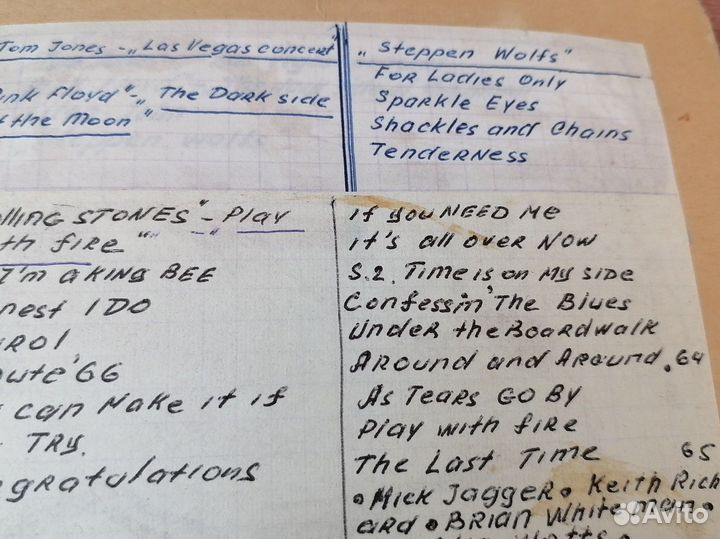 Tom Jones - „Las Vegas concert"
ink Floyd" - „ The Dark side
f the Moon"
„ Steppen Wolfs"
For Ladies Only
Sparkle Eyes
Shackles and Chains
Tenderness
lling STONES" - „ Play
th fire"
I'm a King BEE
nest I Do
arol
oute '66
can make it if
Try.
ngratulations
if you NEED ME
it's all over Now
S.2. Time is on My side
Confessin' The Blues
Under the Boardwalk
Around and Around. 64
As Tears Go By
Play with fire
The Last Time 65
• Mick Jagger • Keith Rich
ard • BRIAN Whiteman •
Watts •
Avito